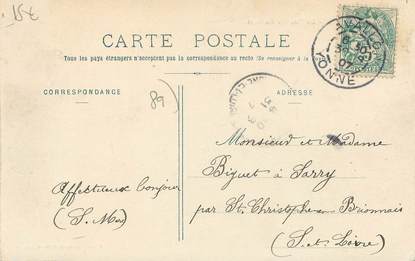 15€
CARTE POSTALE
Tous les pays étrangers n'acceptent pas la correspondance au recto (Se renseigner à la
CORRESPONDANCE
ADRESSE
89
AVALLON
07
YONNE
Monsieur et Madame
Biguet à Sarry
par St. Christophe en Brionnais
(S. et Loire)
Affectueux bonjour